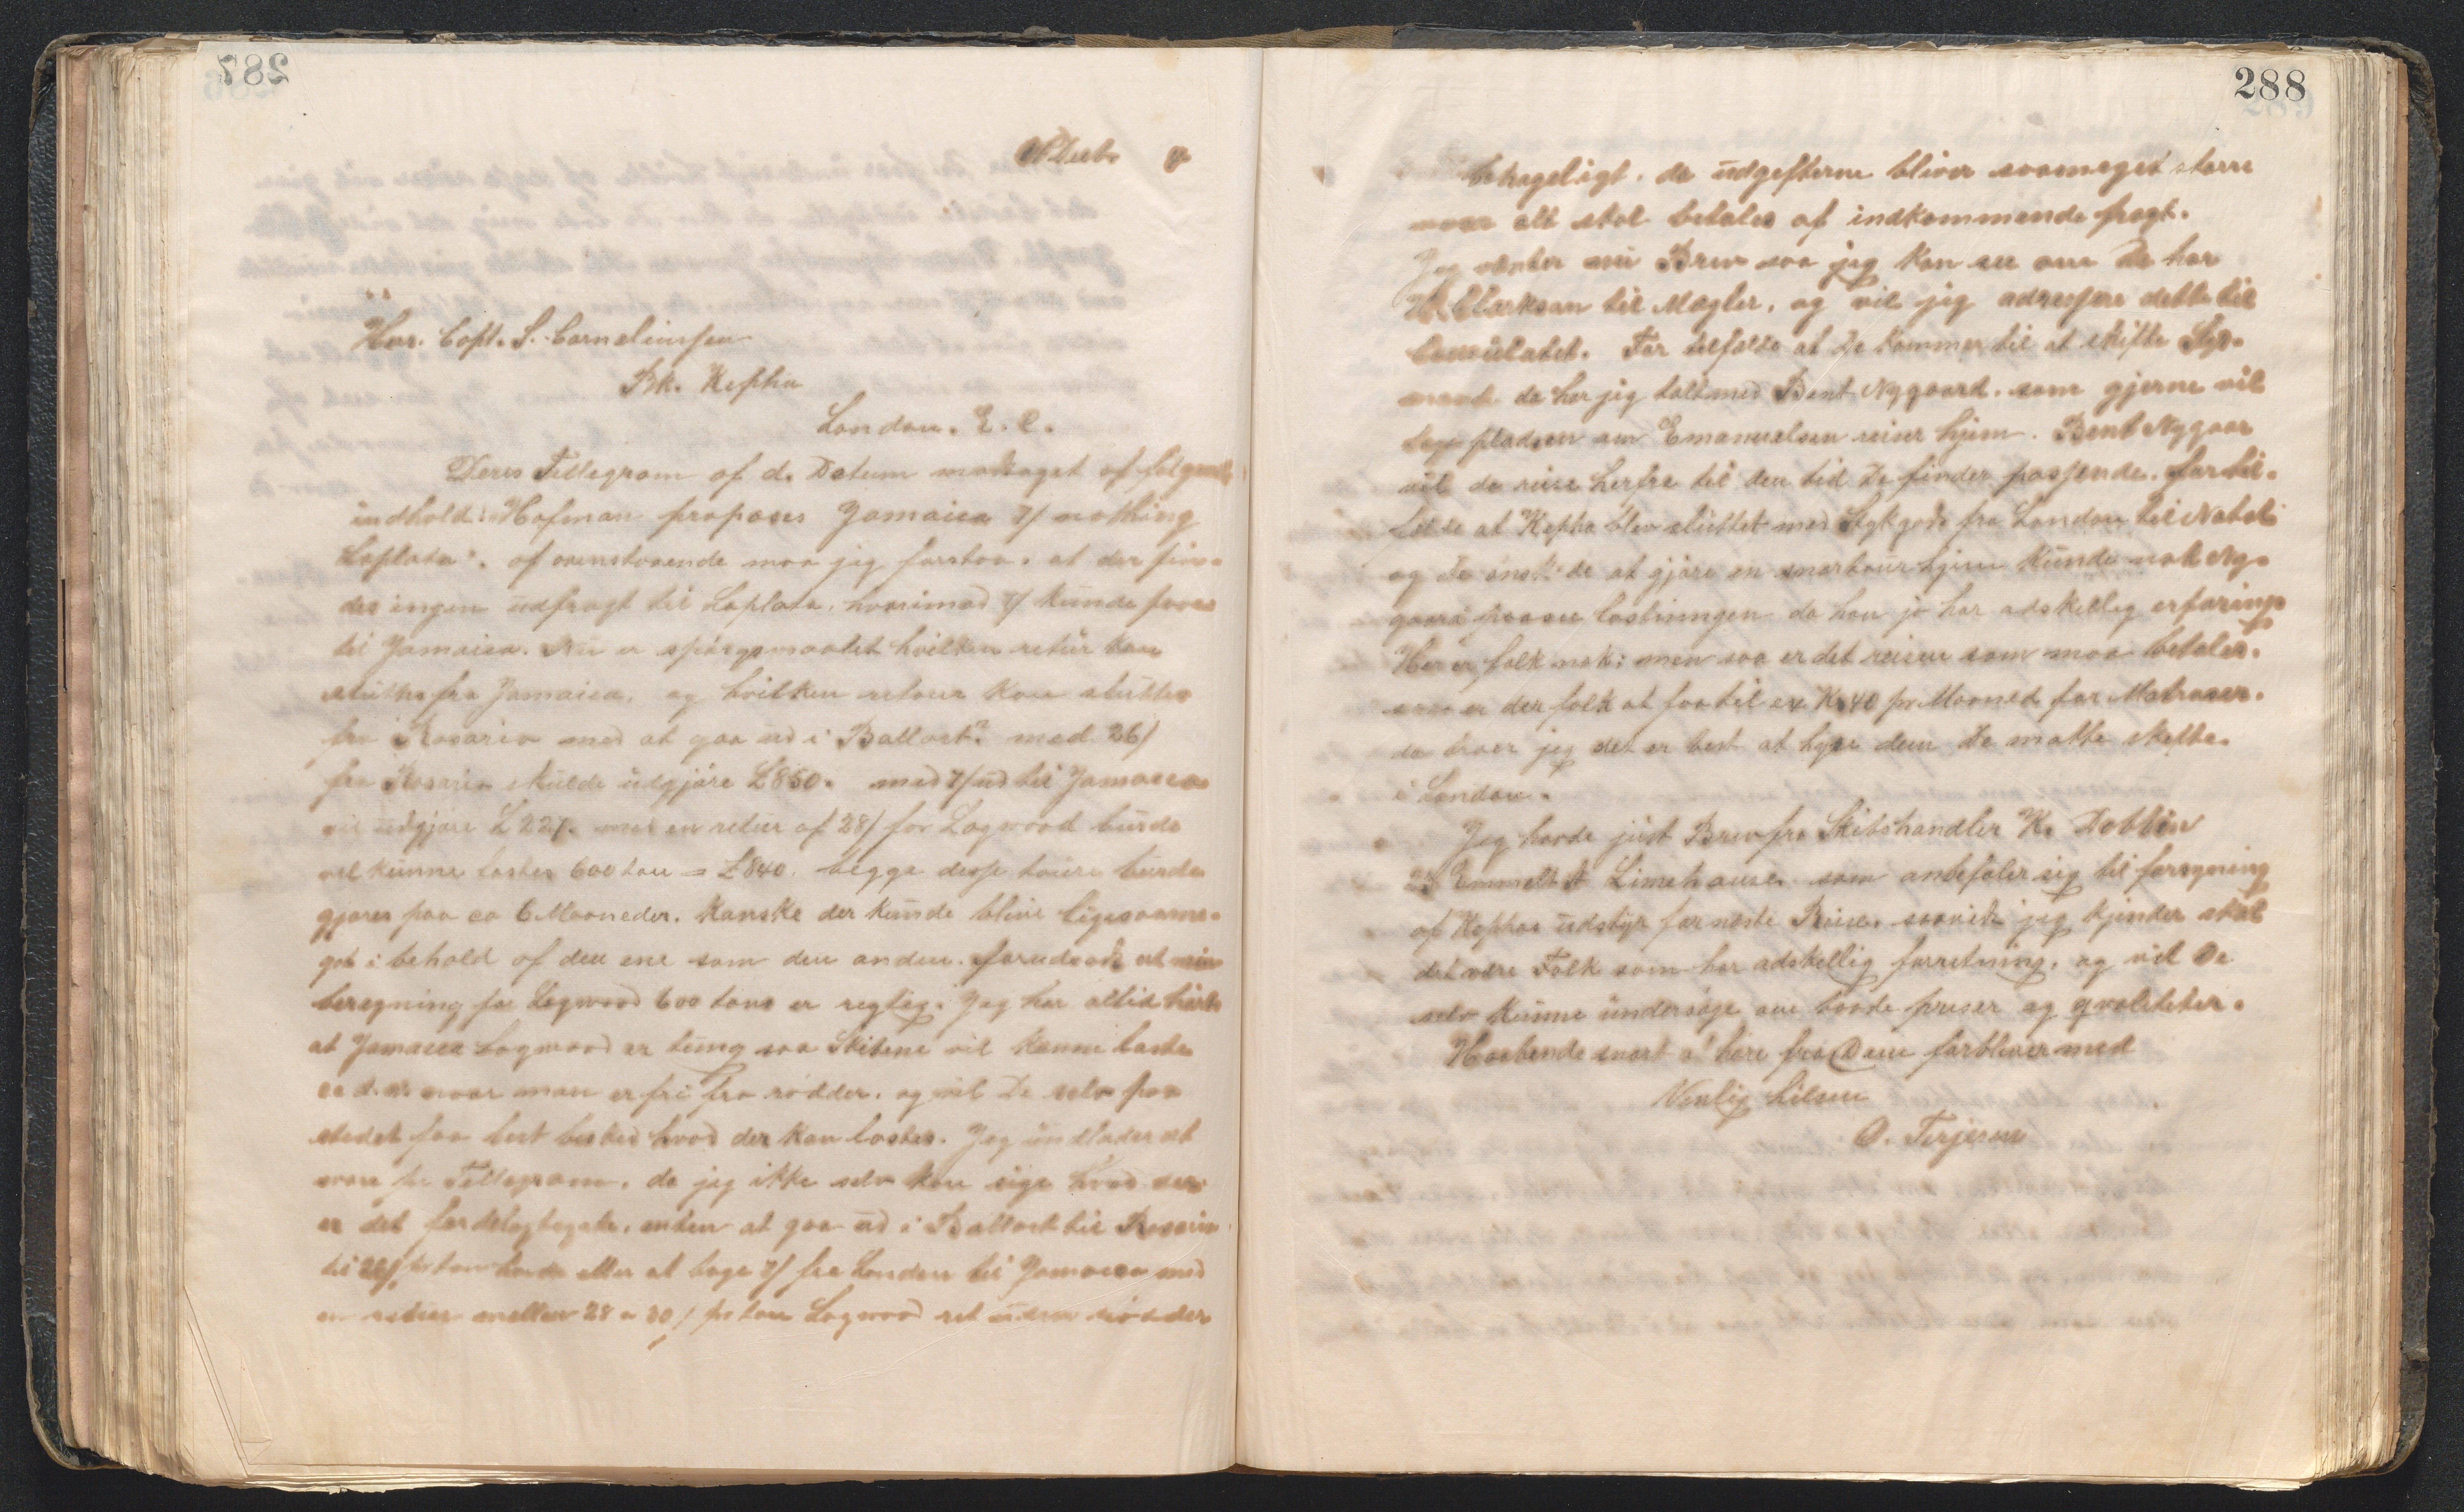 287
Decbr
Herr. Capt. S. Corneliussen
Bk. Kepha
London. E. C.
Deres Tellegram af d. Datum modtaget af følgende
indhold: "Hofman proposes Jamaica 7/ nothing
Laplata". af ovenstaaende maa jeg forstaa, at der fin-
des ingen udfragt til Laplata, hvorimod 7/ kunde faaes
til Jamaica. Nu er spørgsmaalet hvilken retur kan
sluttes fra Jamaica, og hvilken retour kan sluttes
fra Rosario med at gaa ud i Ballast? med 26/
fra Rosario skulde udgjøre £850. med 7/ ud til Jamaica
vil udgjøre £227. med en retur af 28/ for Logwood burde
vel kunne lastes 600 ton = £840. begge disse toure burde
gjøres paa ca 6 Maaneder. Kanske der kunde blive ligesaame-
get i behold af den ene som den anden. forudsadt at min
beregning for Logwood 600 tons er regtig. Jeg har altid hørt
at Jamaica Logwood er tung saa Skibene vil kunne laste
ca d.w. naar man er fri fra rødder, og vil De selv paa
stedet faa best besked hvad der kan lastes. Jeg undlader at
svare pr Tellegram, da jeg ikke selv kan sige hvad der
er det fordelagtigste, enten at gaa ud i Ballast til Rosario
til 26/ pr ton eller at tage 7/ fra London til Jamaica med
en retur mellem 28 a 30/ pr ton Logwood ret uden rødder
288
behageligt, da udgifterne bliver saameget større
naar alt skal betales af indkommende fragt.
Jeg venter nu Brev saa jeg kan see om De har
H. Clarkson til Mægler, og vil jeg adressere dette til
Consulatet. For tilfælde at De kommer til at skifte Sty-
mand da har jeg talt med Bent Nygaard, som gjerne vil
tage pladsen om Emanuelsen reiser hjem. Bent Nygaar
vil da reise herfra til den tid De finder passende. for til-
fælde at Kepha blev sluttet med Stykgods fra London til Natal
og De ønskede at gjøre en snartour hjem kunde nok Ny-
gaard passe lastningen da han jo har adskillig erfaring
Her er folk nok; men saa er det reisen som maa betales.
saa er der folk at faa til Kr 40 pr Maaned for Matroser.
da troer jeg det er best at hyre dem De maatte skifte
i London.
Jeg havde just Brev fra Skibshandler K. Tobbin
25 Emmett St Limehouse, som anbefaler sig til forsyning
af Kephas udstyr for neste Reise, saavidt jeg kjender skal
det være Folk som har adskillig forretning, og vil De
selv kunne undersøge om baade priser og qvaliteter.
Haabende snart at høre fra Dem forbliver med
Venlig hilsen
O. Terjesen